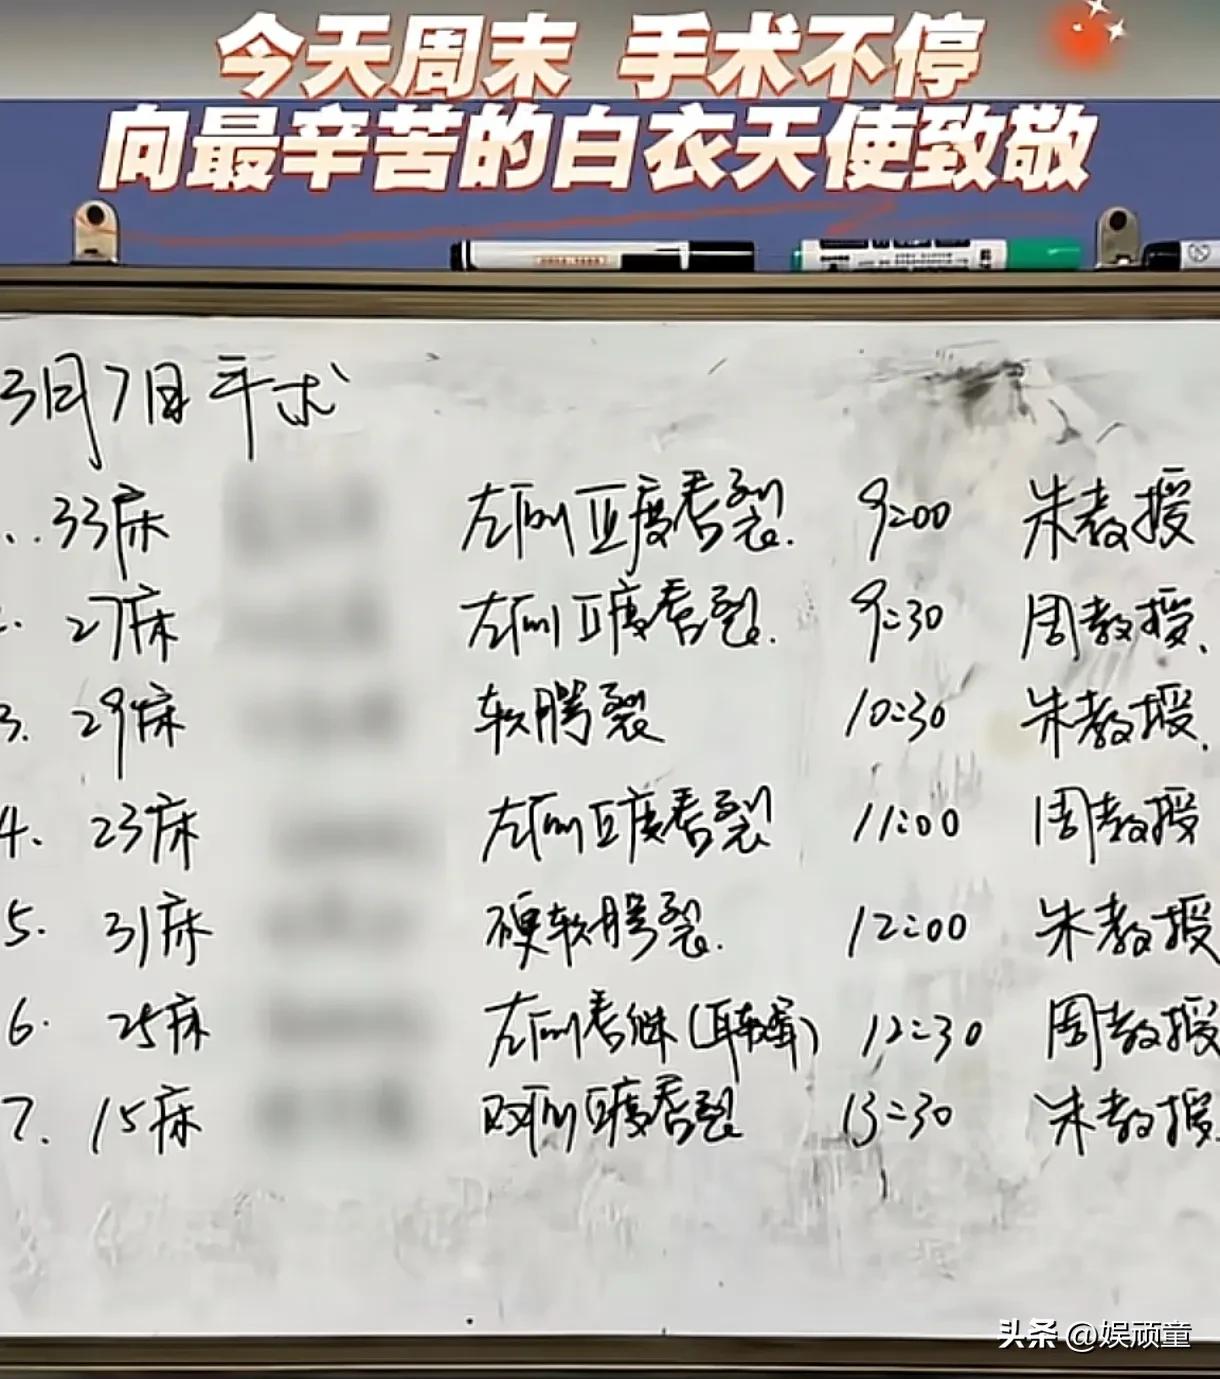 今天周末 手术不停
向最辛苦的白衣天使致敬
3月7日手术
33床 左侧Ⅲ度唇裂. 9:00 朱教授
2. 27床 左侧Ⅱ度唇裂. 9:30 周教授.
3. 29床 软腭裂 10:30 朱教授.
4. 23床 左侧Ⅱ度唇裂 11:00 周教授
5. 31床 硬软腭裂. 12:00 朱教授
6. 25床 左侧唇继(耳软骨) 12:30 周教授
7. 15床 双侧Ⅱ度唇裂 13:30 朱教授.
头条 @娱顽童